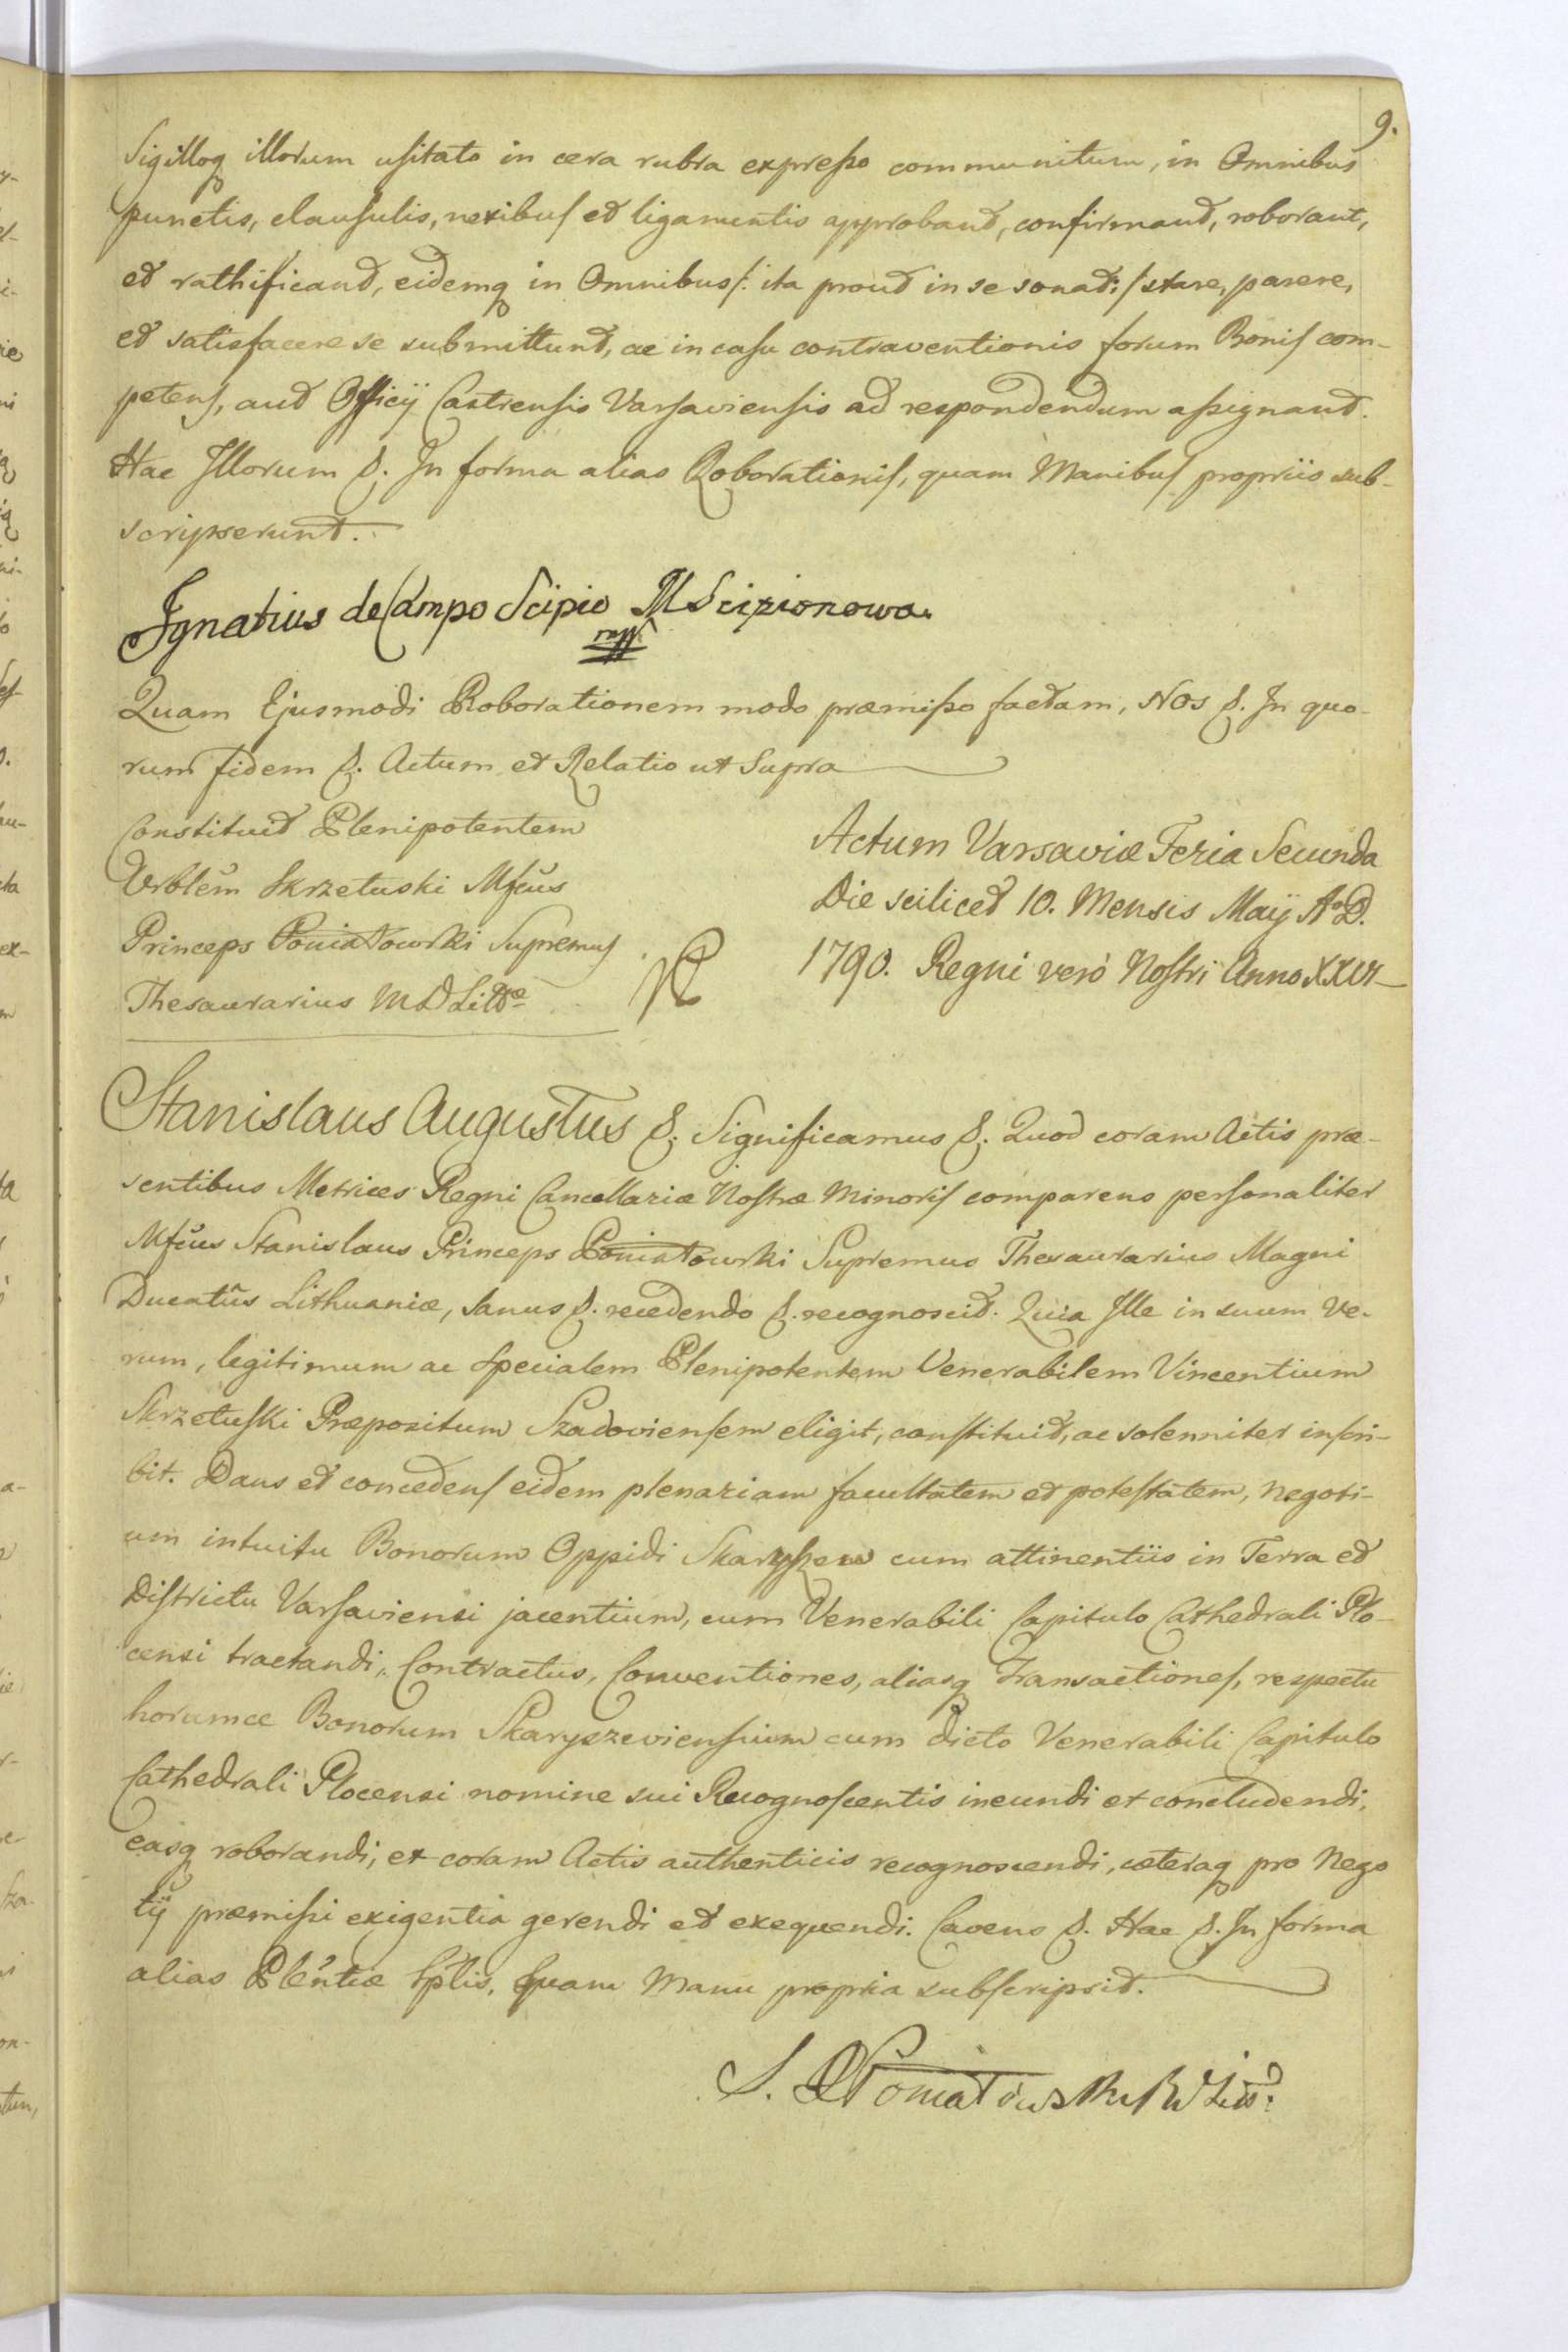 9.
Sigilloq illorum usitato in cera rubra expresso communitum, in Omnibus
punctis, clausulis, nexibus et ligamentis approbant, confirmant, roborant,
et rathificant, eidemq in Omnibus /: ita prout in se sonat :/ stare, parere,
et satisfacere se submittunt, ac in casu contraventionis forum Bonis com-
petens, aut Officij Castrensis Varsaviensis ad respondendum assignant.
Hac Illorum &. In forma alias Roborationis, quam Manibus propriis sub-
scripserunt.
Ignatius de Campo Scipio M Scipionowa.
mpp
Quam Ejusmodi Roborationem modo præmisso factam, Nos &. In quo-
rum fidem &. Actum et Relatio ut Supra
Constituit Plenipotentem
Vrblem Skrzetuski Mfcus
Princeps Poniatowski Supremus
Thesaurarius M D Littæ
Actum Varsaviæ Feria Secunda
Die scilicet 10. Mensis Maij A°D.
1790. Regni vero Nostri Anno XXVI
Stanislaus Augustus &. Significamus &. Quod coram Actis præ-
sentibus Metrices Regni Cancellariæ Nostræ Minoris comparens personaliter
Mfcus Stanislaus Princeps Poniatowski Supremus Thesaurarius Magni
Ducatus Lithuaniæ, sanus &. recedendo &. recognoscit. Quia Ille in suum Ve-
rum, legitimum ac specialem Plenipotentem Venerabilem Vincentium
Skrzetuski Præpositum Szadoviensem eligit, constituit, ac solenniter inscri-
bit. Dans et concedens eidem plenariam facultatem et potestatem, negoti-
um intuitu Bonorum Oppidi Skaryszew cum attinentiis in Terra et
Districtu Varsaviensi jacentium, cum Venerabili Capitulo Cathedrali Plo-
censi tractandi, Contractus, Conventiones, aliasq Transactiones, respectu
horumce Bonorum Skaryszeviensium cum dicto Venerabili Capitulo
Cathedrali Plocensi nomine sui Recognoscentis ineundi et concludendi,
easq roborandi, et coram Actis authenticis recognoscendi, cæteraq pro Nego
tij præmissi exigentia gerendi et exequendi. Cavens &. Hac &. In forma
alias Plentiæ Splis, Quam Manu propria subscripsit.
S. Poniatowski